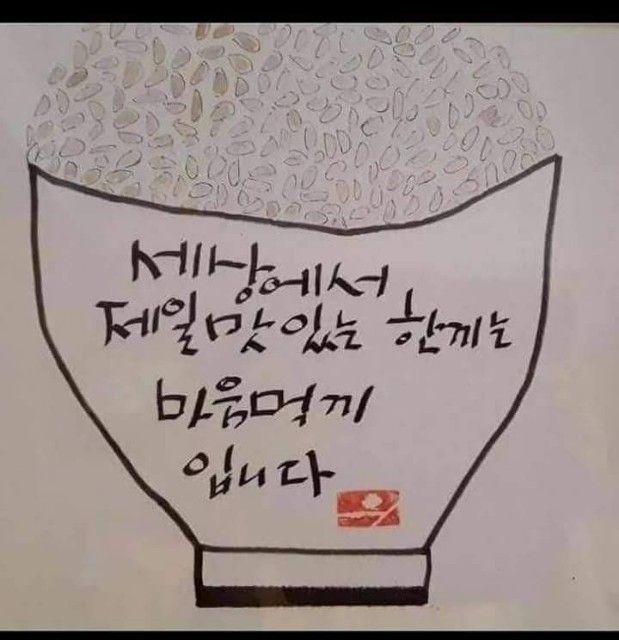 세상에서
제일 맛있는 한끼는
마음먹끼
입니다